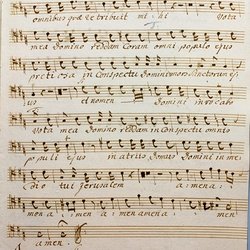 omnibus quæ retribuit mihi Vota
mea Domino reddam Coram omni populo ejus
pretiosa in Conspectu Domini mors Sanctorum ej
us et nomen Domini invocabo
Vota mea Domino reddam in conspectu omnis
populi ejus in atriis Domus Domini in me
dio tui Jerusalem amena
mena men amen amena men
amen.